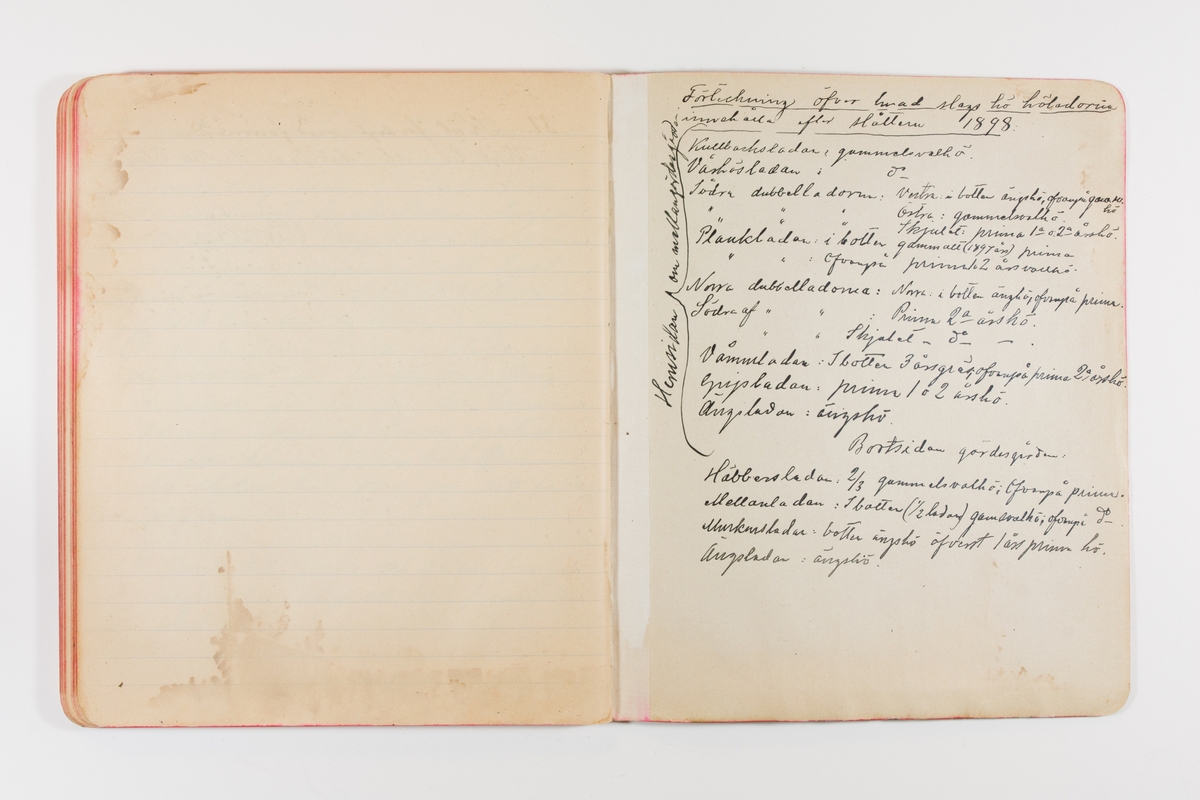 Förteckning öfver hvad slags hö höladorna
innehålla efter slåttern 1898.
Hemsidan om mellangärdesgården
Kullbacksladan: gammelsvalhö.
Vårhösladan : do
Södra dubbelladorna: Vestra: i botten ängshö, ofvanpå gammelhö
" " " Östra: gammelsvalhö.
Skjulet: prima 1a o 2a årshö.
Plankladan: i botten gammalt (1897 års) prima
" " : Ofvanpå prima 1 o 2 årsvallhö.
Norra dubbelladorna: Norra: i botten ängshö, ofvanpå prima.
Södra af " " : Prima 2a årshö.
" " Skjulet – do – .
Våmmladan: I botten 3 årsgräs, ofvanpå prima 2a årshö.
Gripsladan: prima 1 o 2 årshö.
Ängsladan: ängshö.
Bortsidan gärdesgården:
Häbbersladan: 2/3 gammelsvalhö; Ofvanpå prima.
Mellanladan: I botten (1/2 ladan) gamsvalhö; ofvanpå do.
Murkensladan: botten ängshö öfverst 1 års prima hö.
Ängsladan: ängshö.